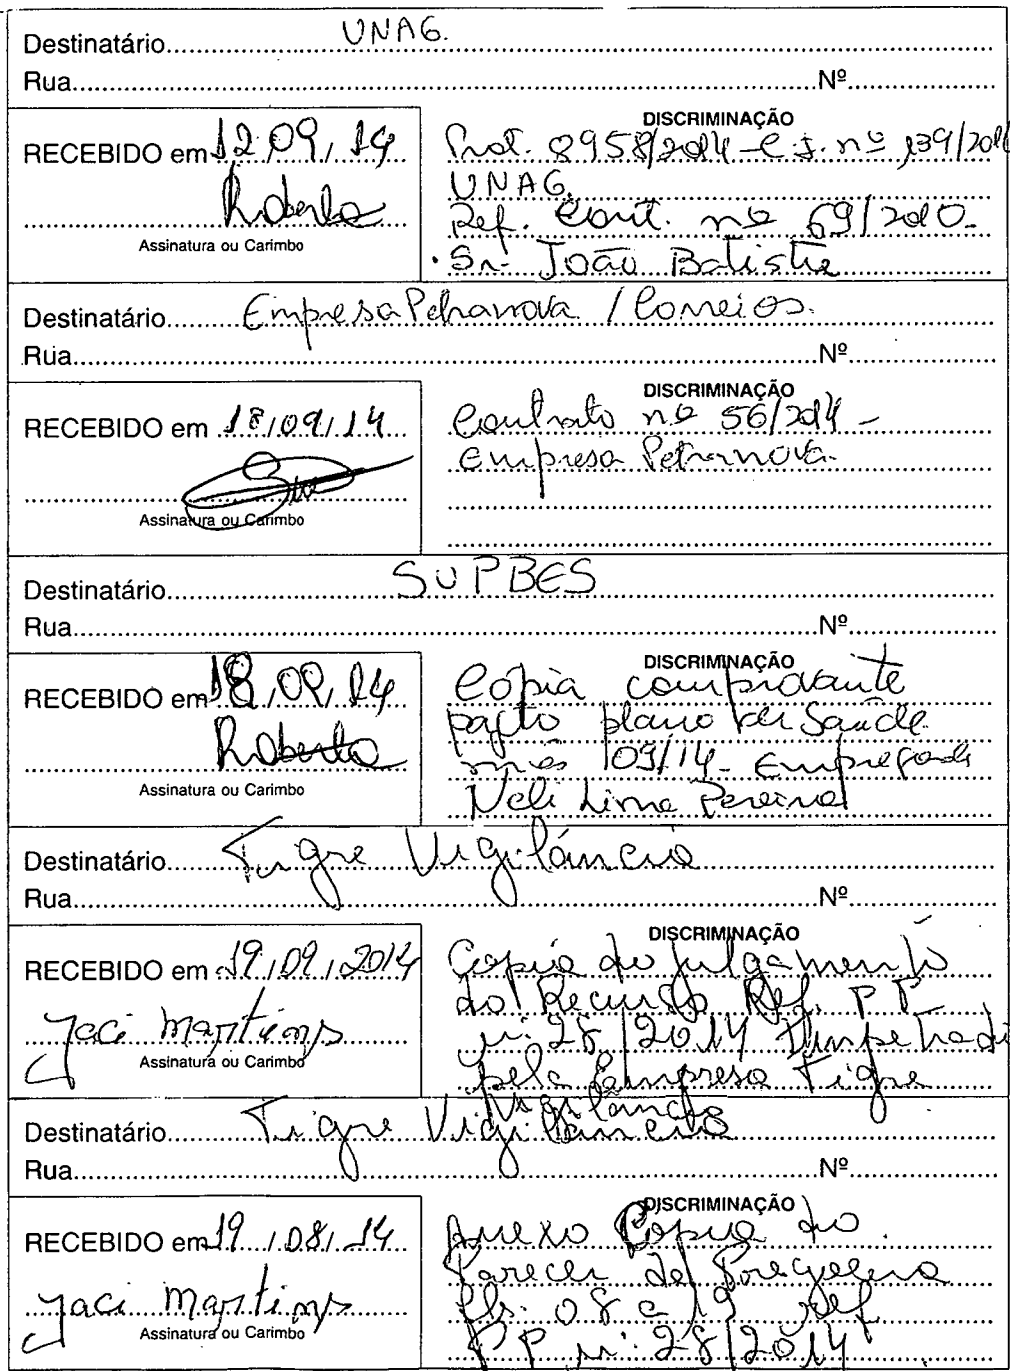 Destinatário UNAG.
Rua Nº
RECEBIDO em 12, 09, 14
Roberto
Assinatura ou Carimbo
DISCRIMINAÇÃO
Prot. 8958/2014 - C.J. nº 139/2014
UNAG.
Ref. Cont. nº 69/2010.
Sr. João Batista
Destinatário Empresa Petranova / Correios.
Rua Nº
RECEBIDO em 18, 09, 14
Assinatura ou Carimbo
DISCRIMINAÇÃO
Contrato nº 56/2014 -
Empresa Petranova.
Destinatário SUPBES
Rua Nº
RECEBIDO em 18, 09, 14
Roberto
Assinatura ou Carimbo
DISCRIMINAÇÃO
Cópia comprovante
pagto plano de Saúde
mês 09/14 - Empregada
Neli Lima Pereira
Destinatário Tigre Vigilância
Rua Nº
RECEBIDO em 19, 09, 2014
Jaci Martins
Assinatura ou Carimbo
DISCRIMINAÇÃO
Copia do julgamento
do Recurso Ref. PP
nº 28/2014 Impetrado
pela Empresa Tigre
Vigilância
Destinatário Tigre Vigilância
Rua Nº
RECEBIDO em 19, 08, 14
Jaci Martins
Assinatura ou Carimbo
DISCRIMINAÇÃO
Anexo Copia do
Parecer de Pregoeiro
fls. 08 a 19 ref
PP nº 28/2014